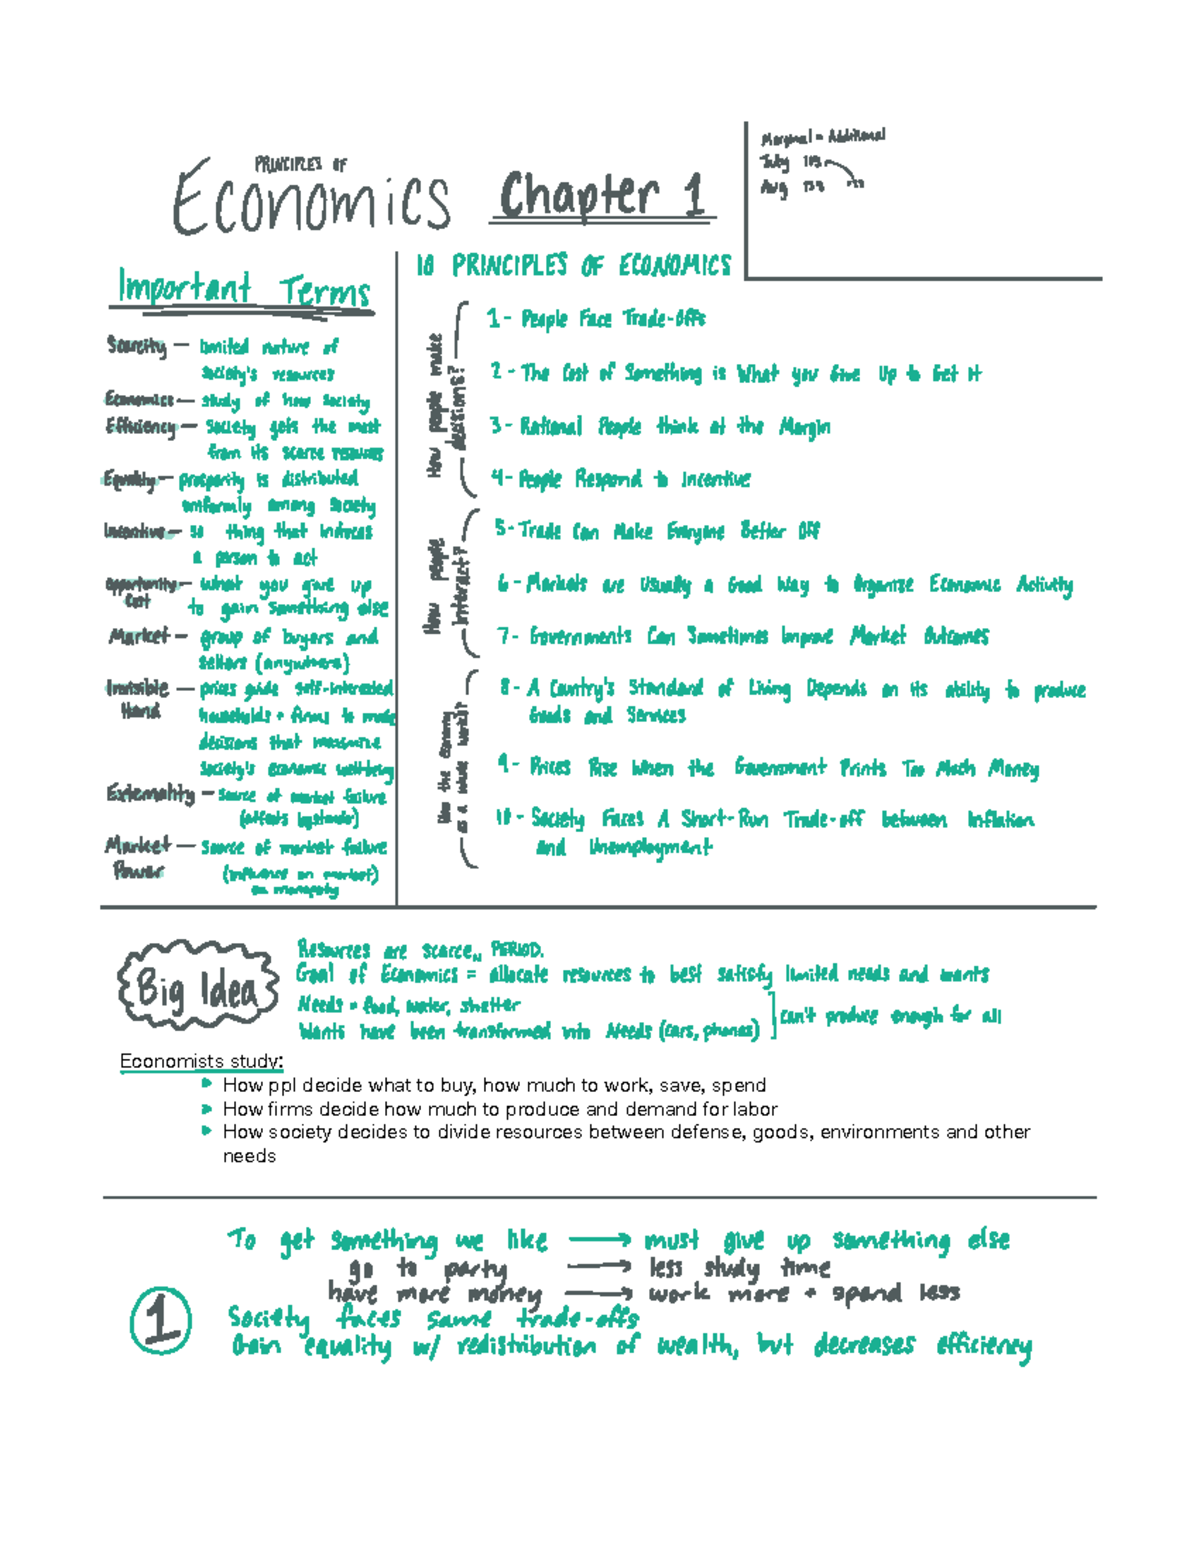 PRINCIPLES OF
ECONOMICS Chapter 1
Marginal = Additional
July
Aug
Important Terms
Scarcity — limited nature of
society's resources
Economics — study of how society
Efficiency — society gets the most
from its scarce resources
Equality — prosperity is distributed
uniformly among society
Incentive — so thing that induces
a person to act
opportunity cost — what you give up
to gain something else
Market — group of buyers and
sellers (anywhere)
Invisible Hand — prices guide self-interested
households + firms to make
decisions that maximize
society's economic well-being
Externality — source of market failure
(affects bystander)
Market Power — source of market failure
(influence on market)
monopoly
10 PRINCIPLES OF ECONOMICS
How people make
decisions?
1 - People Face Trade-offs
2 - The Cost of Something is What you Give Up to Get It
3 - Rational People think at the Margin
4 - People Respond to Incentive
How people
interact?
5 - Trade Can Make Everyone Better Off
6 - Markets are Usually a Good Way to Organize Economic Activity
7 - Governments Can Sometimes Improve Market Outcomes
How the economy
as a whole works?
8 - A Country's Standard of Living Depends on its ability to produce
Goods and Services
9 - Prices Rise When the Government Prints Too Much Money
10 - Society Faces A Short-Run Trade-off between Inflation
and Unemployment
Big Idea
Resources are scarce, PERIOD.
Goal of Economics = allocate resources to best satisfy limited needs and wants
Needs = food, water, shelter
Wants have been transformed into Needs (cars, phones)
can't produce enough for all
Economists study:
How ppl decide what to buy, how much to work, save, spend
How firms decide how much to produce and demand for labor
How society decides to divide resources between defense, goods, environments and other
needs
1
To get something we like → must give up something else
go to party → less study time
have more money → work more + spend less
Society faces same trade-offs
Gain equality w/ redistribution of wealth, but decreases efficiency